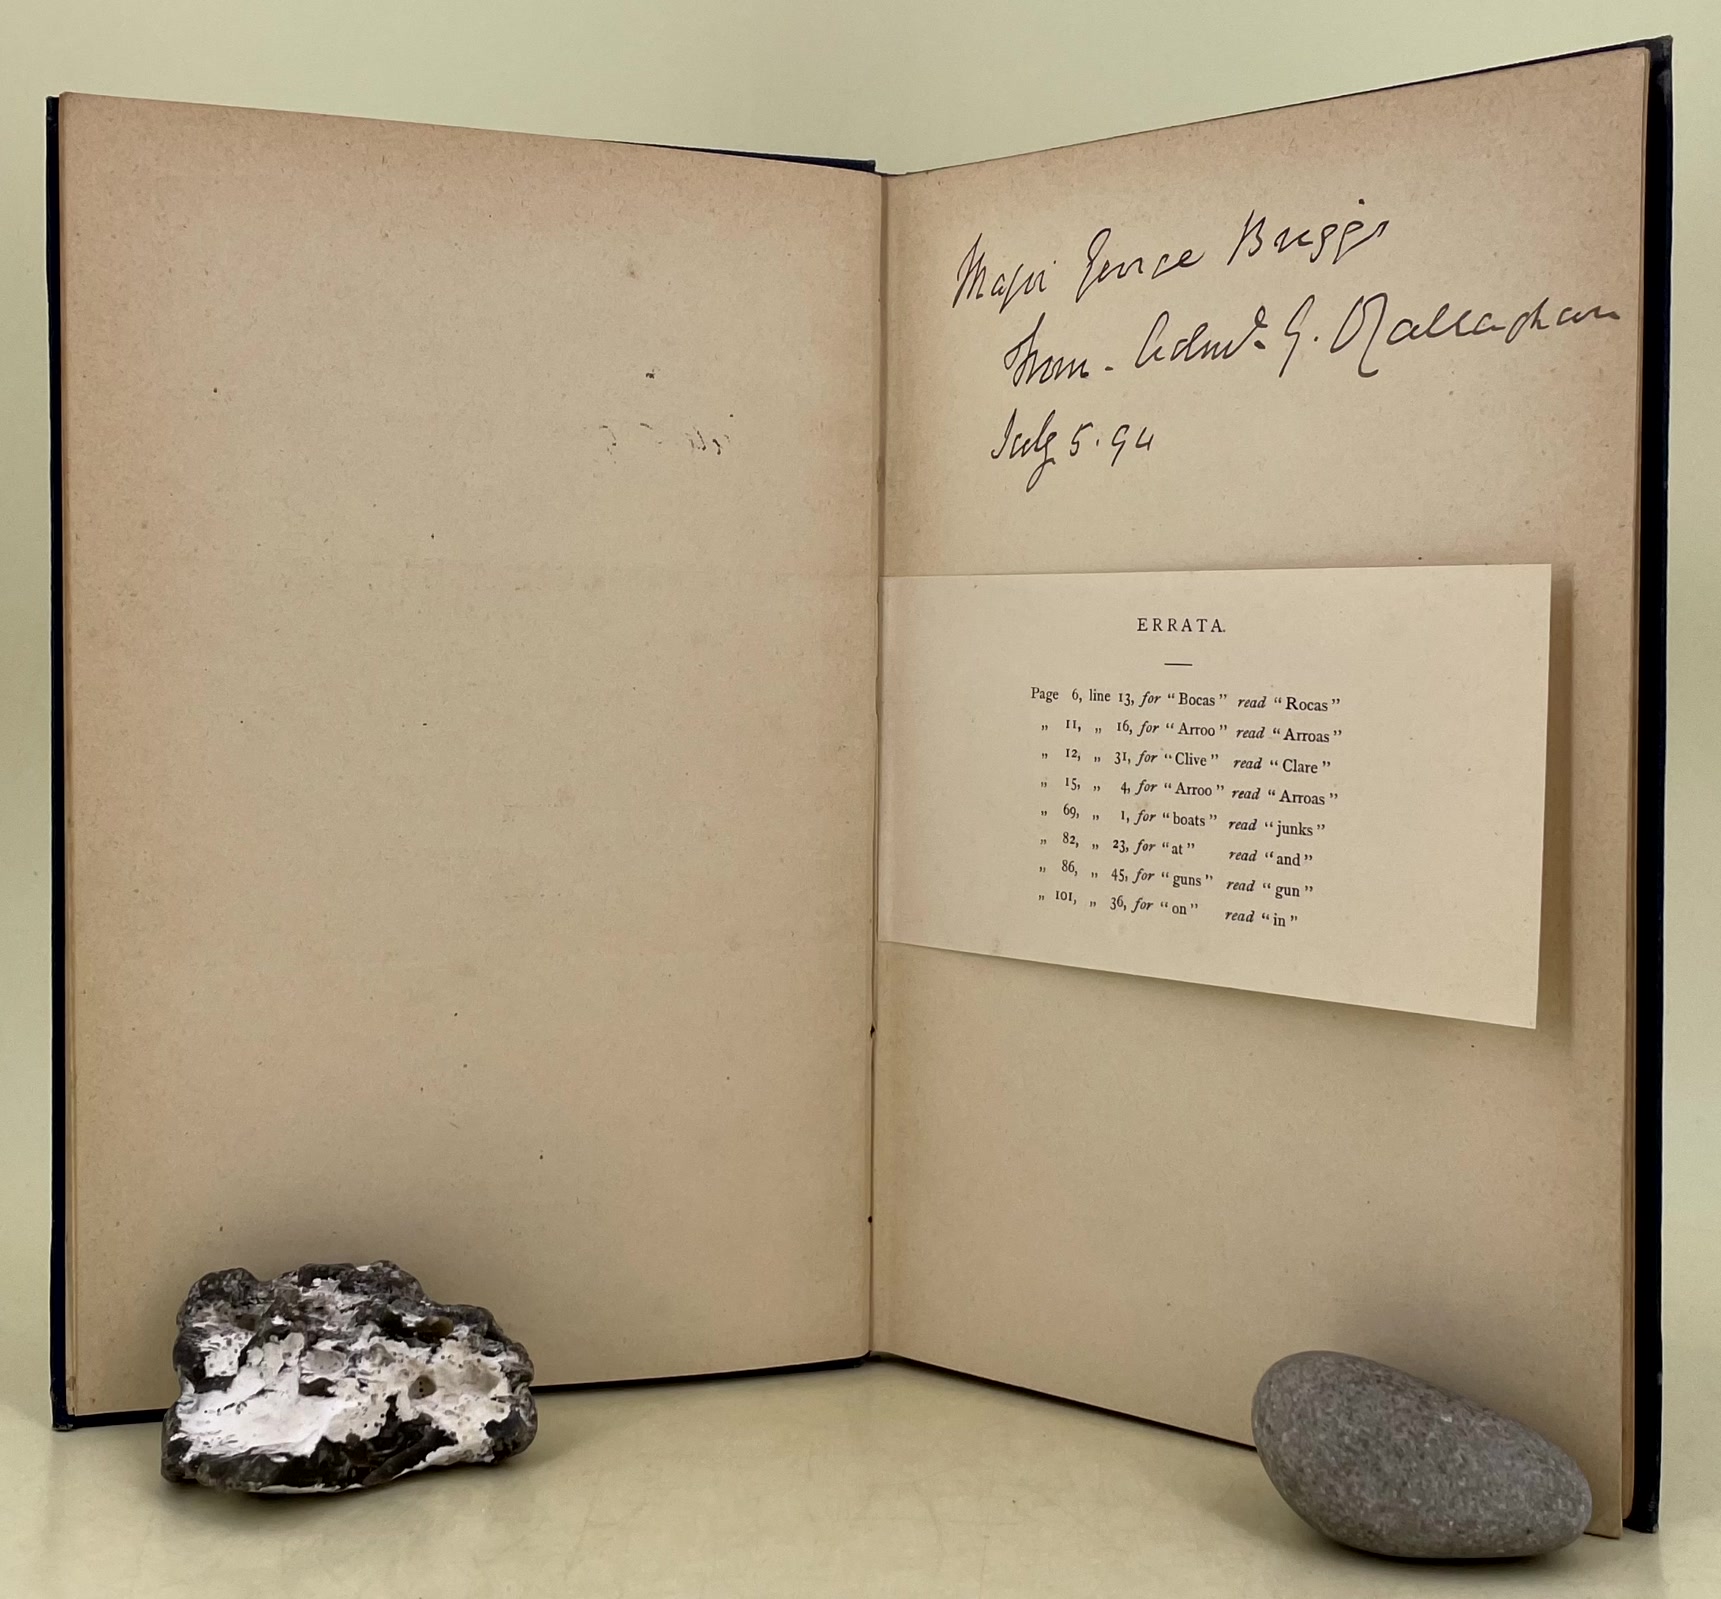 Major George Briggs
From. Admˡ. G. O'Callaghan
July 5. 94
ERRATA.
Page 6, line 13, for “Bocas” read “Rocas”
„ 11, „ 16, for “Arroo” read “Arroas”
„ 12, „ 31, for “Clive” read “Clare”
„ 15, „ 4, for “Arroo” read “Arroas”
„ 69, „ 1, for “boats” read “junks”
„ 82, „ 23, for “at” read “and”
„ 86, „ 45, for “guns” read “gun”
„ 101, „ 36, for “on” read “in”